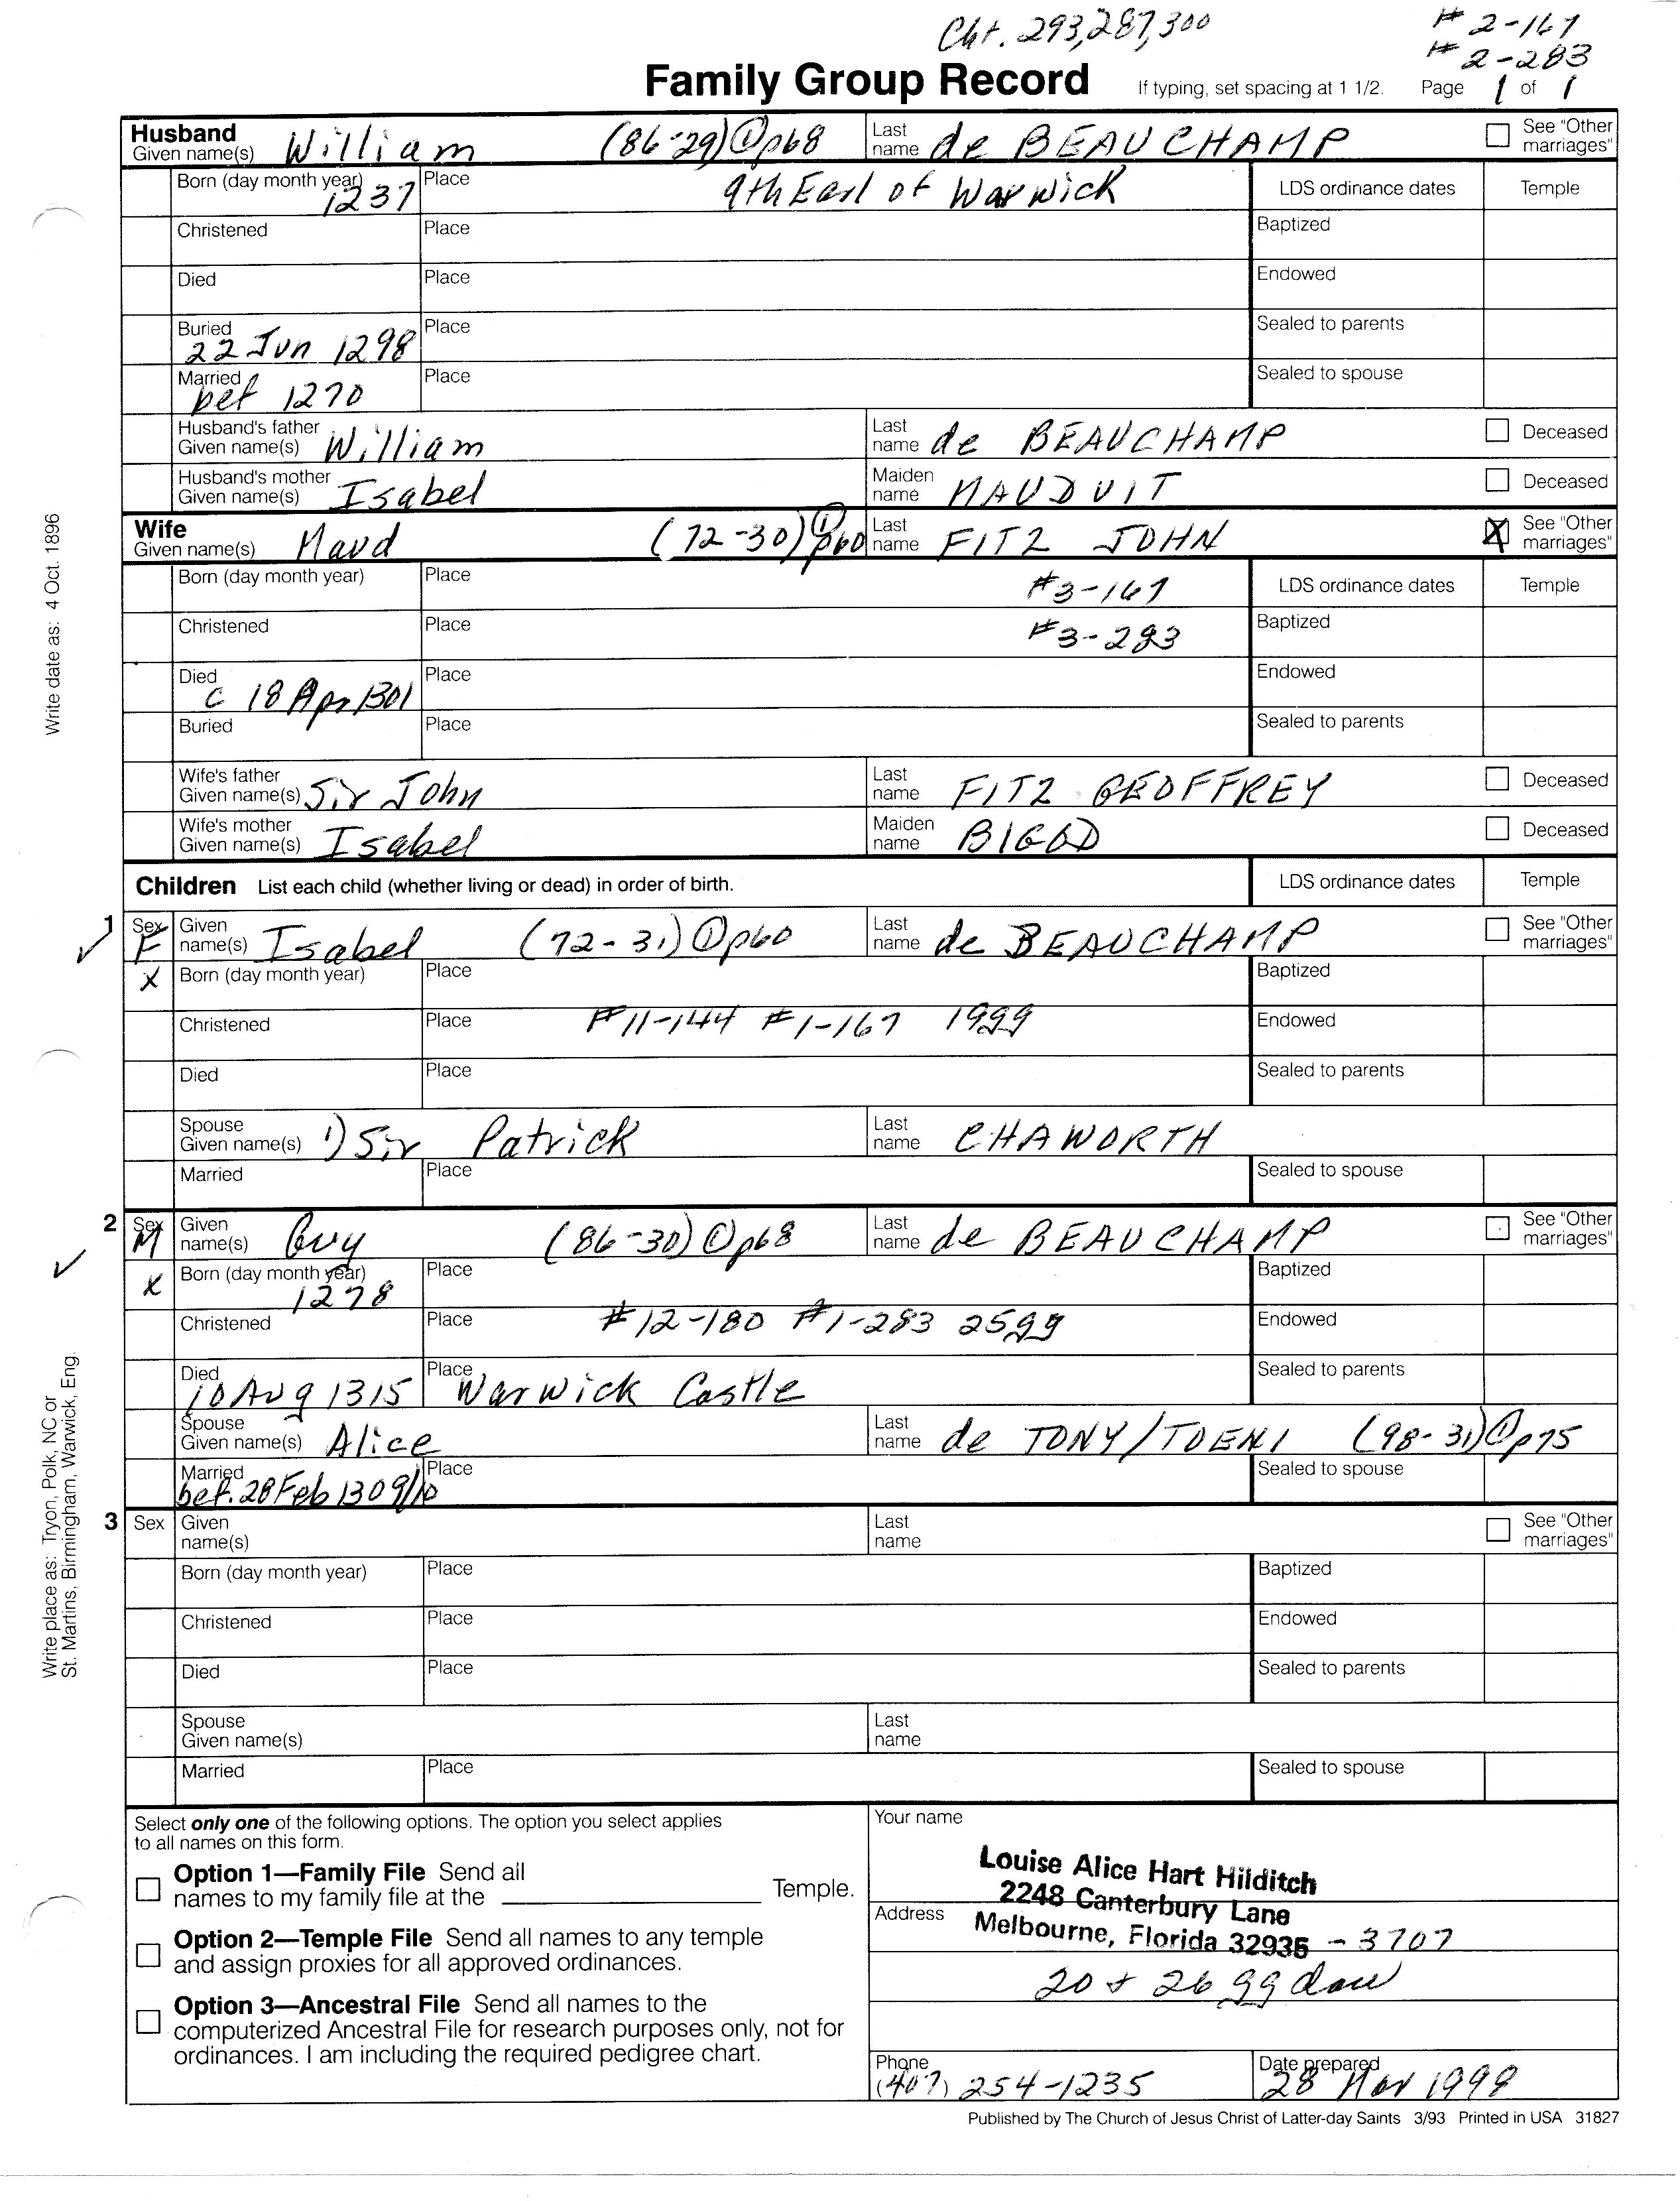 Cht. 293,287,300
# 2-167
# 2-283
Family Group Record If typing, set spacing at 1 1/2. Page 1 of 1
Husband
Given name(s) William (86-29) ① p68 Last name de BEAUCHAMP See "Other marriages"
Born (day month year) 1237 Place 9th Earl of Warwick LDS ordinance dates Temple
Christened Place Baptized
Died Place Endowed
Buried 22 Jun 1298 Place Sealed to parents
Married bef 1270 Place Sealed to spouse
Husband's father Given name(s) William Last name de BEAUCHAMP Deceased
Husband's mother Given name(s) Isabel Maiden name MAUDUIT Deceased
Wife
Given name(s) Maud (72-30) ① p60 Last name FITZ JOHN X See "Other marriages"
Born (day month year) Place #3-167 LDS ordinance dates Temple
Christened Place #3-283 Baptized
Died c 18 Apr 1301 Place Endowed
Buried Place Sealed to parents
Wife's father Given name(s) Sir John Last name FITZ GEOFFREY Deceased
Wife's mother Given name(s) Isabel Maiden name BIGOD Deceased
Children List each child (whether living or dead) in order of birth. LDS ordinance dates Temple
1 Sex F Given name(s) Isabel (72-31) ① p60 Last name de BEAUCHAMP See "Other marriages"
X Born (day month year) Place Baptized
Christened Place #11-144 #1-167 19gg Endowed
Died Place Sealed to parents
Spouse Given name(s) 1) Sir Patrick Last name CHAWORTH
Married Place Sealed to spouse
2 Sex M Given name(s) Guy (86-30) ① p68 Last name de BEAUCHAMP See "Other marriages"
X Born (day month year) 1278 Place Baptized
Christened Place #12-180 #1-283 25gg Endowed
Died 10 Aug 1315 Place Warwick Castle Sealed to parents
Spouse Given name(s) Alice Last name de TONY/TOENI (98-31) ① p75
Married bef. 28 Feb 1309/10 Place Sealed to spouse
3 Sex Given name(s) Last name See "Other marriages"
Born (day month year) Place Baptized
Christened Place Endowed
Died Place Sealed to parents
Spouse Given name(s) Last name
Married Place Sealed to spouse
Select only one of the following options. The option you select applies
to all names on this form.
Option 1—Family File Send all
names to my family file at the Temple.
Option 2—Temple File Send all names to any temple
and assign proxies for all approved ordinances.
Option 3—Ancestral File Send all names to the
computerized Ancestral File for research purposes only, not for
ordinances. I am including the required pedigree chart.
Your name
Louise Alice Hart Hilditch
2248 Canterbury Lane
Address Melbourne, Florida 32935 - 3707
20 + 26 gg dau
Phone (407) 254-1235 Date prepared 28 Mar 1999
Published by The Church of Jesus Christ of Latter-day Saints 3/93 Printed in USA 31827
Write date as: 4 Oct. 1896
Write place as: Tryon, Polk, NC or
St. Martins, Birmingham, Warwick, Eng.